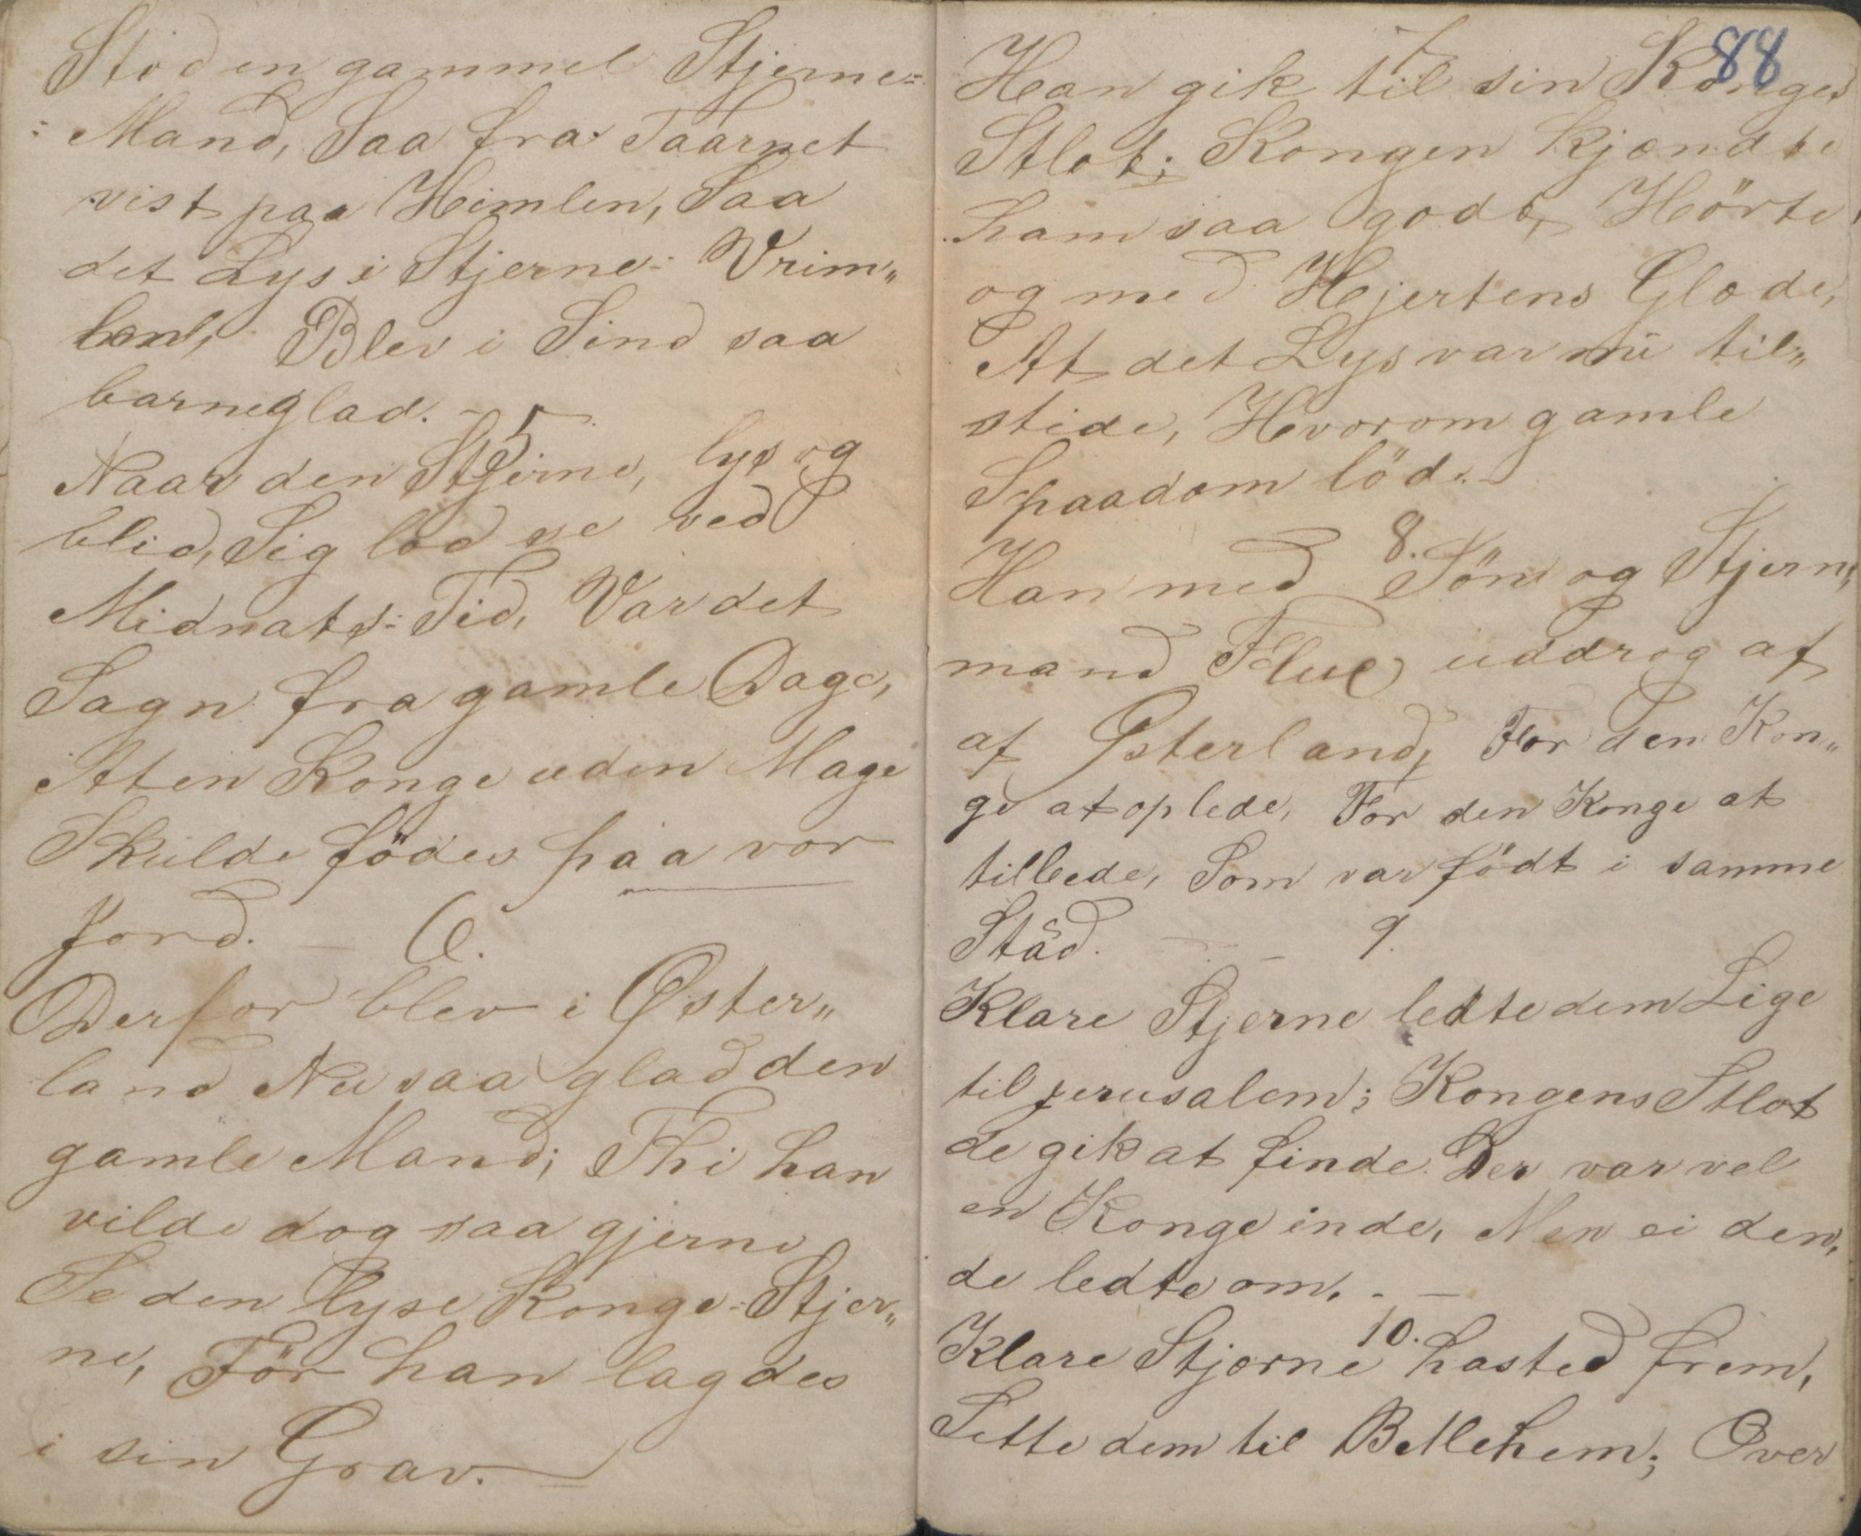 Stod en gammel Stjerne=
=Mand, Saa fra Taarnet
vist paa Himlen, Saa
det Lys i Stjerne= Vrim„
len, Blev i Sind saa
barneglad. –
5.
Naar den Stjerne, lys og
blid, Sig lod se ved
Midnats=Tid, Var det
Sagn fra gamle Dage,
At en Konge uden Mage
Skulde födes paa vor
Jord. – 6.
Derfor blev i Øster„
land Nu saa glad den
gamle Mand; Thi han
vilde dog saa gjerne
Se den lyse Konge=Stjer„
ne, För han lagdes
i sin Grav. –
7 88
Han gik til sin Konges
Stlot; Kongen kjendte
ham saa godt, Hörte
og med Hjertens Glæde,
At det Lys var nu til„
stede, Hvorom gamle
Spaadom löd. –
8.
Han med Sön og Stjern„
mand Flux uddrog af
af Østerland, For den Kon„
ge at oplede, For den Konge at
tilbede, Som var födt i samme
Stád. – – 9.
Klare Stjerne ledte dem Lige
til Jerusalem; Kongens Stlot
de gik at finde. Der var vel
en Konge inde, Men ei den,
de ledte om. –
10.
Klare Stjerne hasted frem,
Lette dem til Betlehem; Over